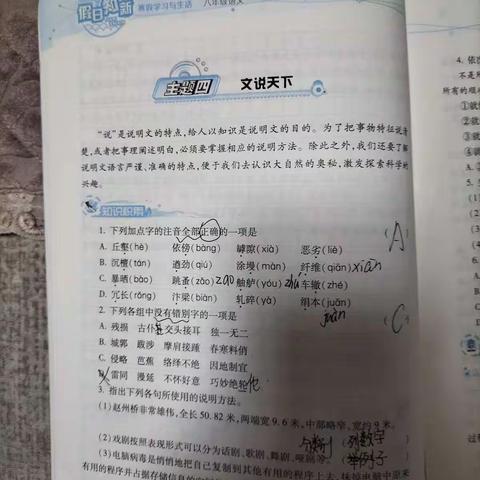 假日知新
寒假学习与生活 八年级语文
主题四 文说天下
“说”是说明文的特点,给人以知识是说明文的目的。为了把事物特征说清
楚,或者把事理阐述明白,必须要掌握相应的说明方法。除此之外,我们还要了解
说明文语言严谨、准确的特点,便于我们去认识大自然的奥秘,激发探索科学的
兴趣。
知识积累
1. 下列加点字的注音全部正确的一项是 (A)
A. 丘壑(hè) 依傍(bàng) 罅隙(xià) 恶劣(liè)
B. 沉檀(tán) 遒劲(qiú) 涂墁(màn) 纤维(qiān) xiān
C. 暴晒(bào) 跳蚤(zǎo) zao 舳舻(yóu) zhú 车辙(zhé)
D. 冗长(rǒng) 汴梁(biàn) 轧碎(yà) 绢本(juān)
juàn
2. 下列各组中没有错别字的一项是 (C
A. 残损 古仆 交头接耳 独一无二
B. 城郭 跋涉 摩肩接踵 春寒料俏
C. 侵略 芭蕉 络绎不绝 因地制宜
D. 雷同 漫延 不怀好意 巧妙绝伦 伦
3. 指出下列各句所使用的说明方法。
(1)赵州桥非常雄伟,全长 50.82 米,两端宽 9.6 米,中部略窄,宽约9米。
(列数字
(2)戏剧按照表现形式可以分为话剧、歌剧、舞剧、哑剧等。 (举例子)
(3)电脑病毒是悄悄地把自己复制到其他有用的程序上去,抹掉电脑中原来
有用的程序并占据存储信息的
4. 依次
不是所
所有的顺
①就
②就
③就
④就
A.
B.
C.
D.
5.